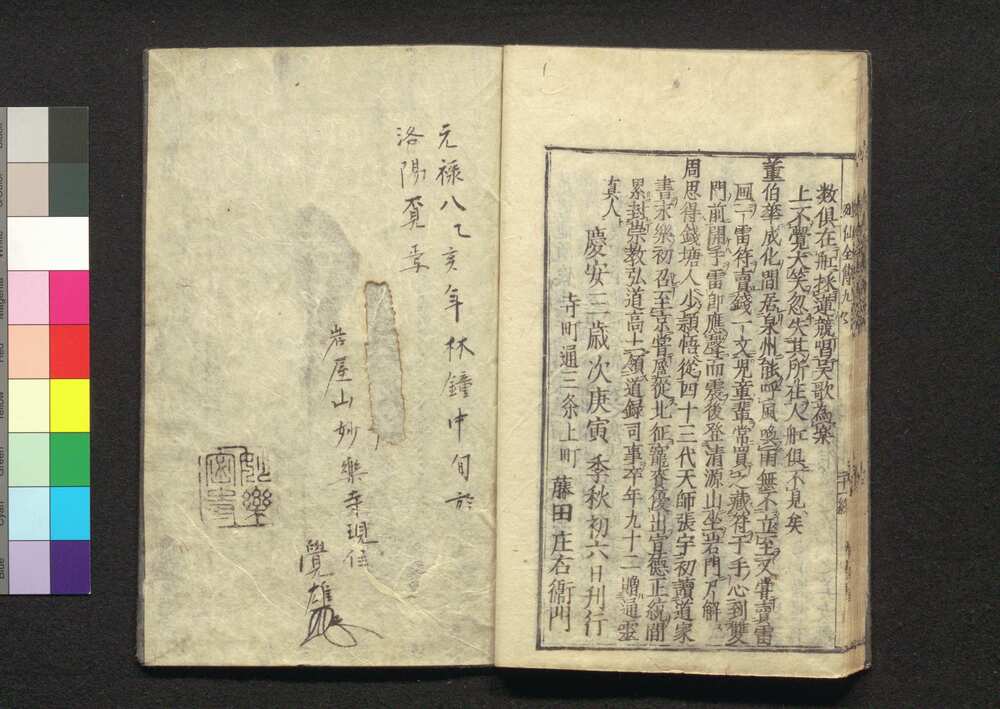 数俱在舡採蓮競唱吳歌為樂
上不覺大笑忽失其所在人舡俱不見矣
董伯華成化間居泉州能呼風喚雨無不立至又嘗賣雷
画一雷符賣錢一文兒童輩常買之藏符于手心到雙
門前開手雷即應聲而震後登清源山坐岩門尸解
周思得錢塘人少頴悟從四十三代天師張宇初讀道家
書永樂初召至京嘗扈從北征寵賚優出宣德正統間
累封崇教弘道高士領道録司事卒年九十二贈通靈
真人
慶安三歳次庚寅季秋初六日刊行
寺町通三条上町 藤田庄右衛門
列仙全傳九卷
元禄八乙亥年林鐘中旬於
洛陽買夲
岩屋山妙樂寺現住
覺雄